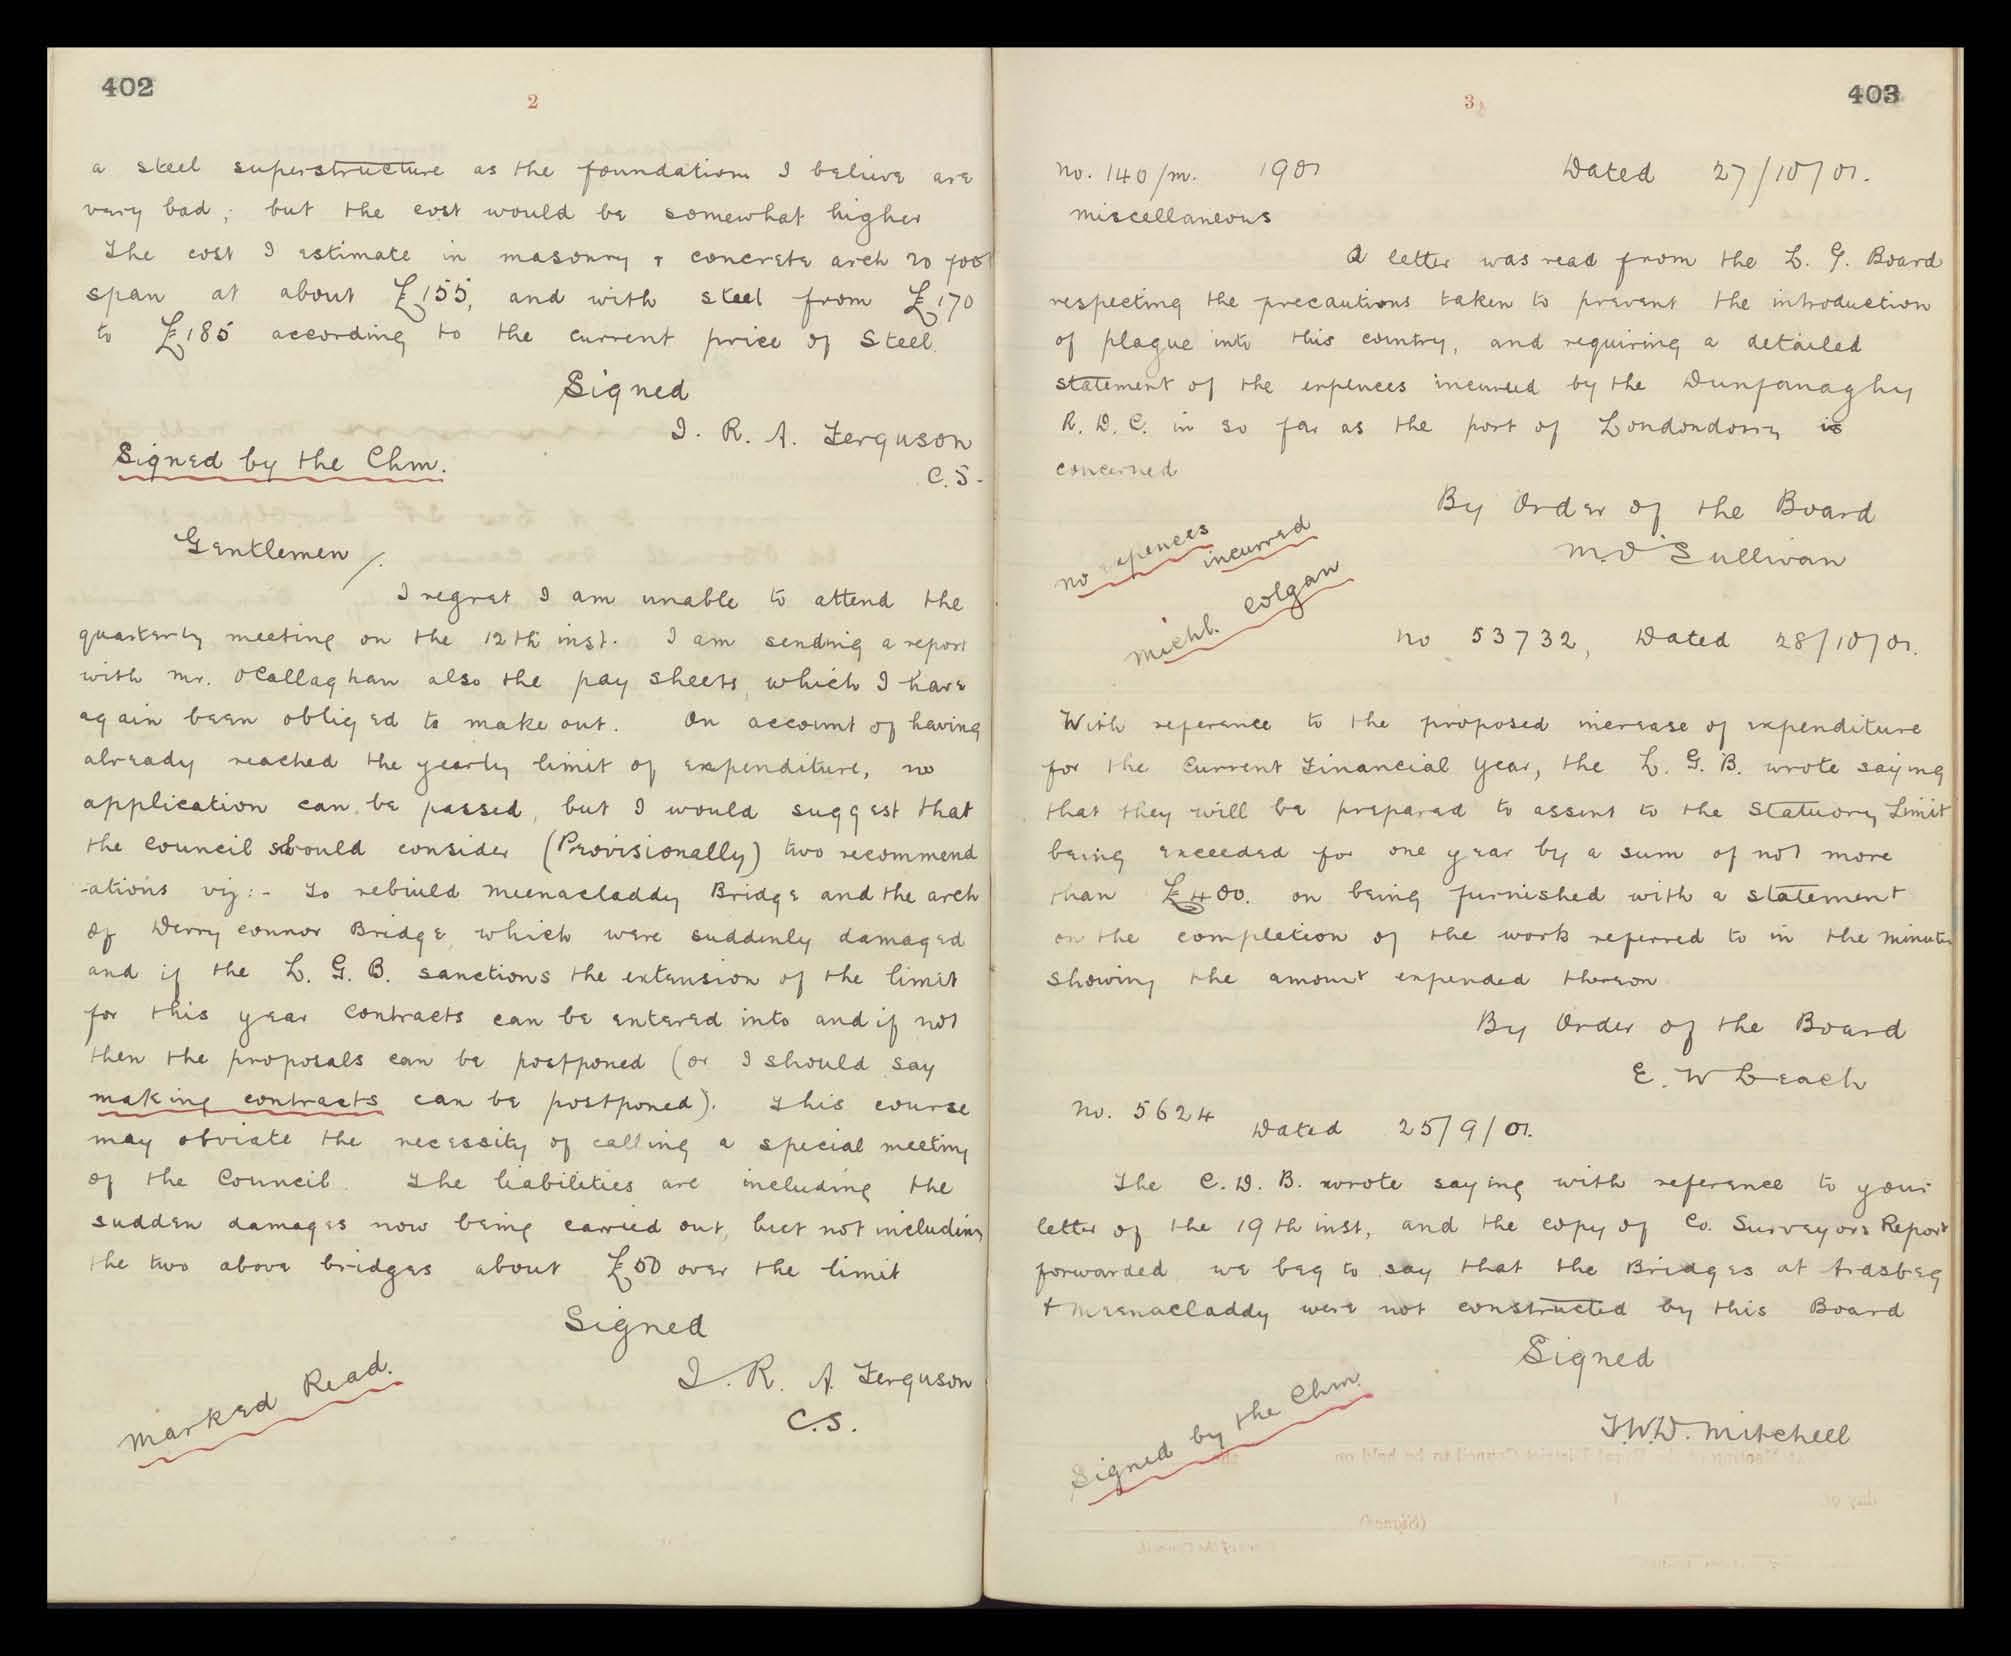 402
2
a steel superstructure as the foundations I believe are
very bad, but the cost would be somewhat higher
The cost I estimate in masonry & concrete arch 20 foot
span at about £155, and with steel from £170
to £185 according to the current price of Steel.
Signed
I. R. A. Ferguson
C.S.
Signed by the Chm.
Gentlemen/.
I regret I am unable to attend the
quarterly meeting on the 12th inst. I am sending a report
with mr. OCallaghan also the pay sheets, which I have
again been obliged to make out. On account of having
already reached the yearly limit of expenditure, no
application can be passed, but I would suggest that
the Council should consider (Provisionally) two recommend
-ations viz:- To rebiuld Meenacladdy Bridge and the arch
of Derryconnor Bridge, which were suddenly damaged
and if the L. G. B. sanctions the extension of the limit
for this year contracts can be entered into and if not
then the proposals can be postponed (or I should say
making contracts can be postponed). This course
may obviate the necessity of calling a special meeting
of the Council. The liabilities are including the
sudden damages now being carried out, but not including
the two above bridges about £50 over the limit
Signed
I. R. A. Ferguson
C.S.
Marked Read.
403
3
No. 140/m. 1901 Dated 27/10/01.
Miscellaneous
A letter was read from the L. G. Board
respecting the precautions taken to prevent the introduction
of plague into this country, and requiring a detailed
statement of the expences incurred by the Dunfanaghy
R. D. C. in so far as the port of Londonderry is
concerned
By Order of the Board
M. O'Sullivan
no expences
incurred
Michl. Colgan
No 53732, Dated 28/10/01.
With reference to the proposed increase of expenditure
for the current Financial Year, the L. G. B. wrote saying
that they will be prepared to assent to the Statuory Limit
being exceeded for one year by a sum of not more
than £400. on being furnished with a statement
on the completion of the work referred to in the minutes
showing the amount expended thereon.
By Order of the Board
E. W Leach
No. 5624 Dated 25/9/01.
The C. D. B. wrote saying with reference to your
letter of the 19th inst, and the copy of Co. Surveyors Report
forwarded we beg to say that the Bridges at Ardsbeg
& Meenacladdy were not constructed by this Board
Signed
T.W.D. Mitchell
Signed by the Chm.